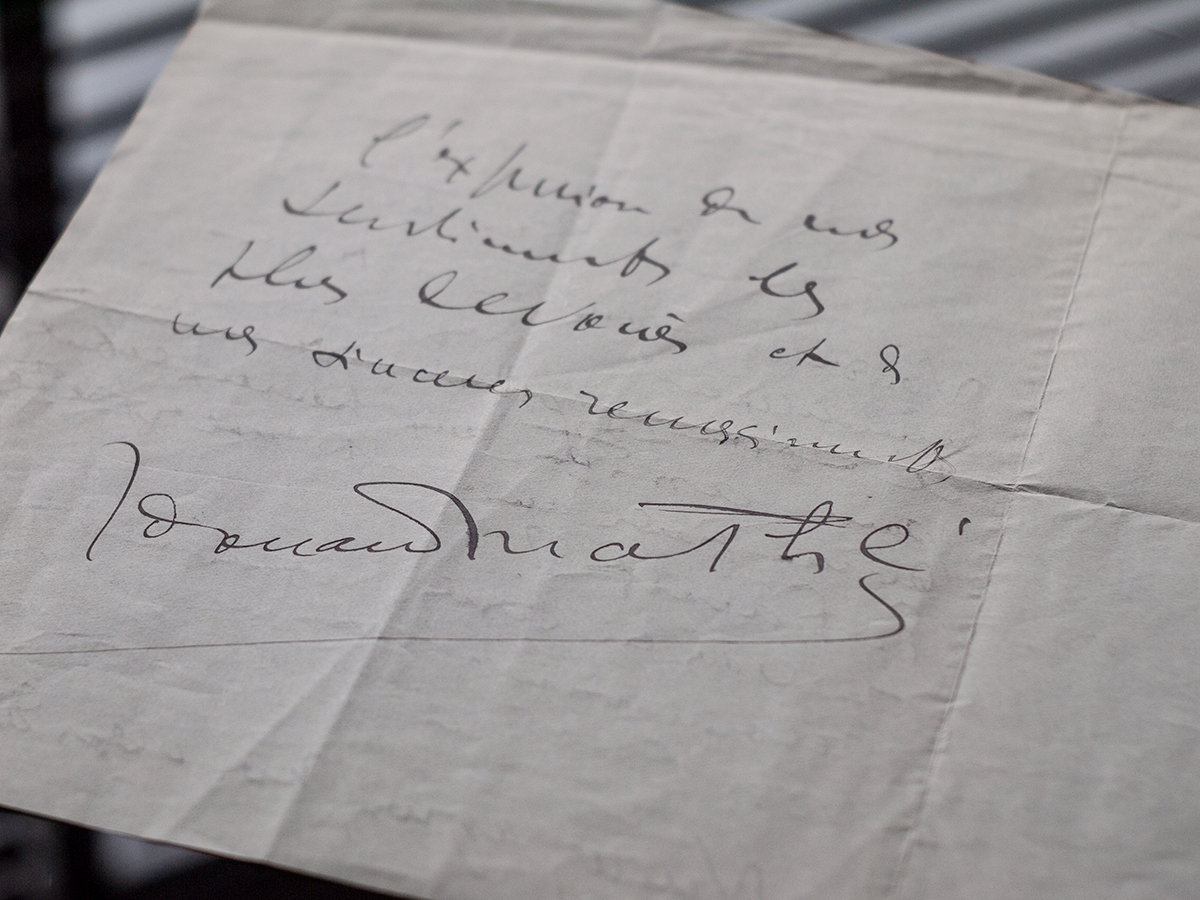 l'expression de mes
sentiments les
plus dévoués et de
mes sincères remerciements
Edouard Mathé